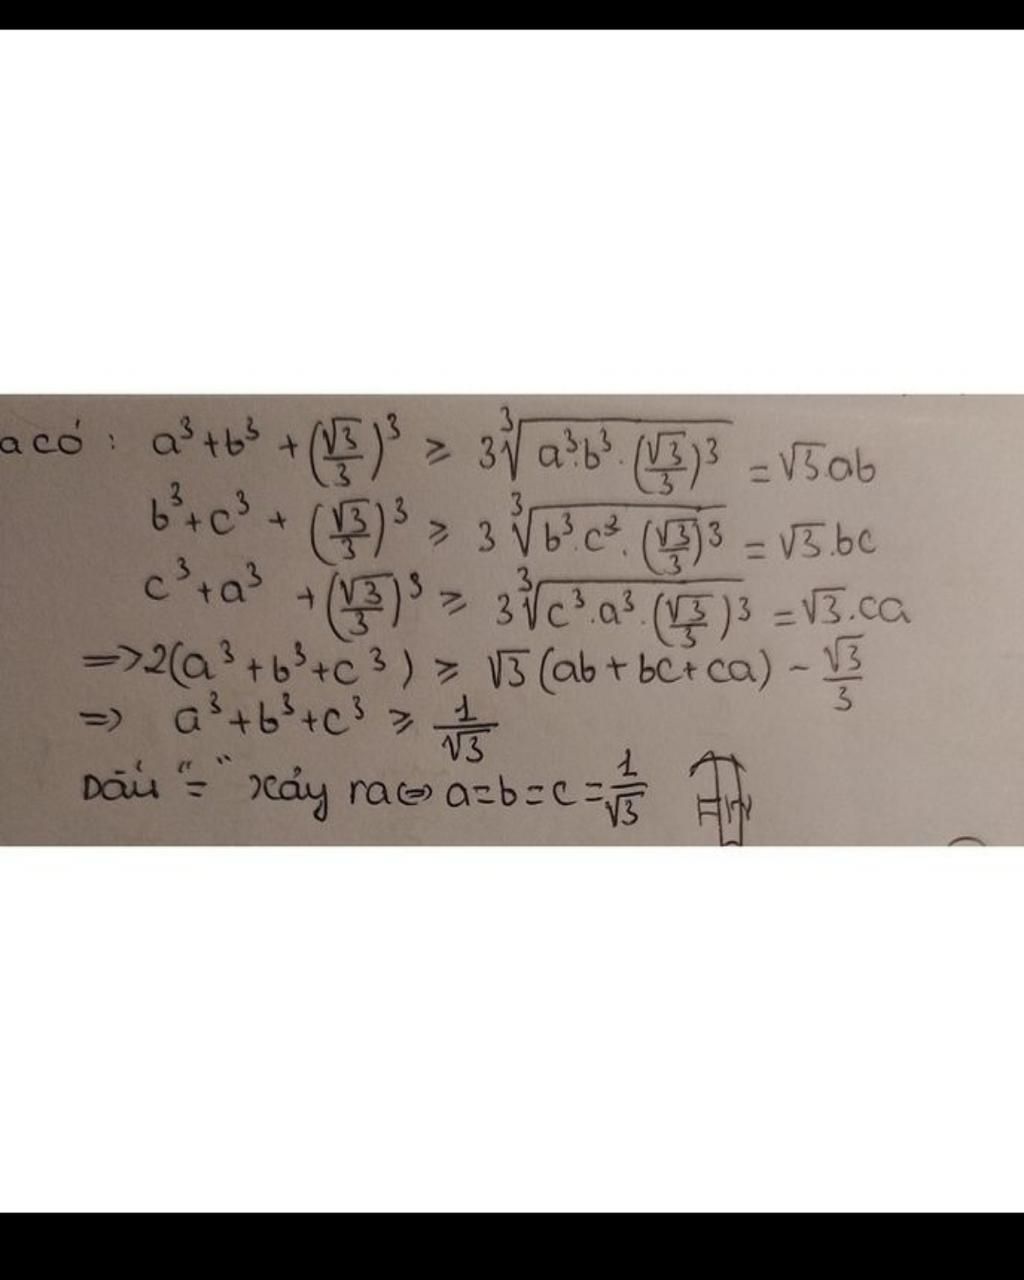 a có : a³ + b³ + (√3/3)³ ⩾ 3∛(a³.b³.(√3/3)³) = √3ab
b³ + c³ + (√3/3)³ ⩾ 3∛(b³.c³.(√3/3)³) = √3.bc
c³ + a³ + (√3/3)³ ⩾ 3∛(c³.a³.(√3/3)³) = √3.ca
=> 2(a³ + b³ + c³) ⩾ √3(ab + bc + ca) - √3/3
=> a³ + b³ + c³ ⩾ 1/√3
Dấu "=" xảy ra <=> a = b = c = 1/√3